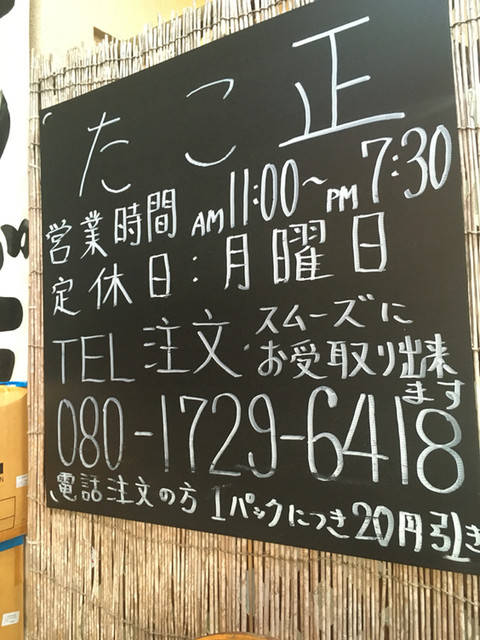 たこ正
営業時間 AM11:00~PM7:30
定休日:月曜日
TEL注文・スムーズに
お受取り出来
ます
080-1729-6418
電話注文の方1パックにつき20円引き